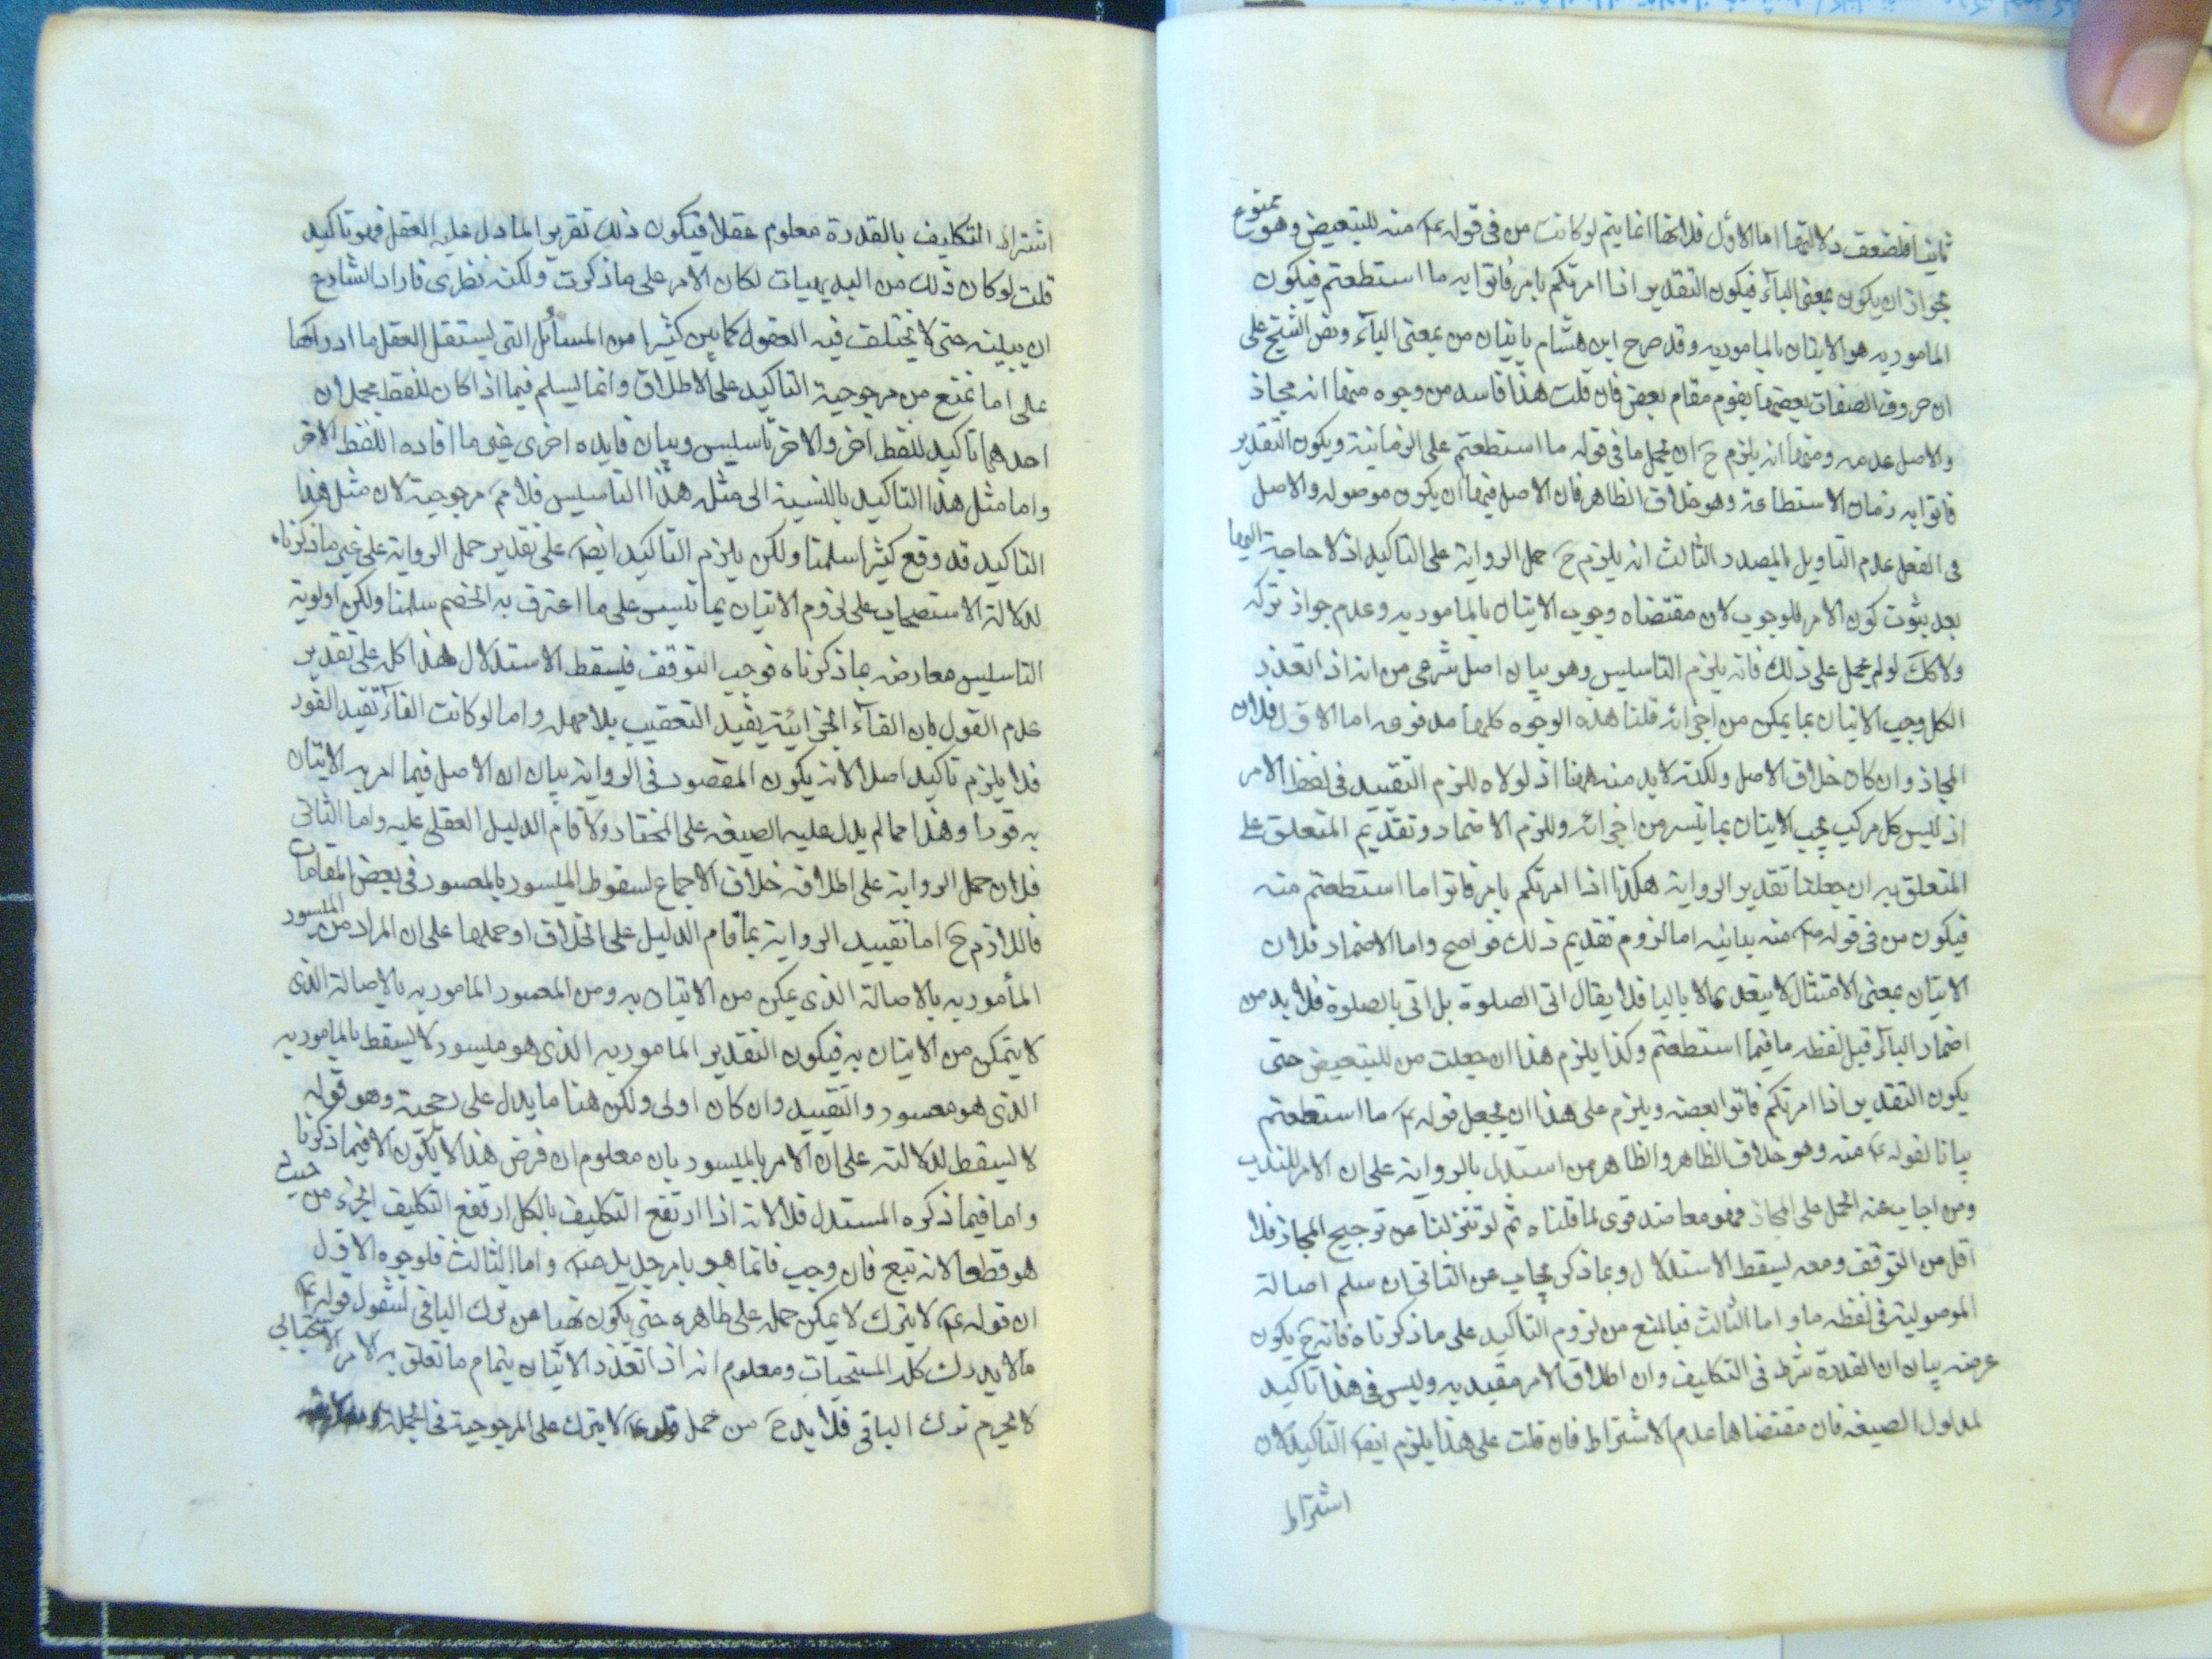 ثانيا فلضعف دلالتها اما الاول فلانها انما يتم لو كانت من فى قوله ع منه للتبعيض وهو ممنوع
لجواز ان يكون بمعنى الباء فيكون التقدير اذا امرتكم بامر فاتوا به ما استطعتم فيكون
المامور به هو الاتيان بالمامور به وقد صرح ابن هشام باتيان من بمعنى الباء ونص الشيخ على
ان حروف الصفات بعضها يقوم مقام بعض فان قلت هذا فاسد من وجوه منها انه مجاز
والاصل عدمه ومنها انه يلزم ح ان يحمل ما فى قوله ما استطعتم على الزمانية ويكون التقدير
فاتوا به زمان الاستطاعة وهو خلاف الظاهر فان الاصل فيها ان يكون موصوله والاصل
فى الفعل عدم التاويل بالمصدر الثالث انه يلزم ح حمل الرواية على التاكيد اذ لا حاجة اليها
بعد ثبوت كون الامر للوجوب لان مقتضاه وجوب الاتيان بالمامور به وعدم جواز تركه
ولا كك لو لم يحمل على ذلك فانه يلزم التاسيس وهو بيان اصل شرعى من انه اذا تعذر
الكل وجب الاتيان بما يمكن من اجزائه قلنا هذه الوجوه كلها مدفوعه اما الاول فلان
المجاز وان كان خلاف الاصل ولكنه لابد منه ههنا اذ لولاه للزم التقييد فى لفظ الامر
اذ ليس كل مركب يجب الاتيان بما تيسر من اجزائه وللزم الاضمار وتقديم المتعلق على
المتعلق به ان جعلنا تقدير الرواية هكذا اذا امرتكم بامر فاتوا ما استطعتم منه
فيكون من فى قوله ع منه بيانيه اما لزوم تقديم ذلك فواضح واما الاضمار فلان
الاتيان بمعنى الامتثال لا يتعد الا بالبا فلا يقال اتى الصلوة بل اتى بالصلوة فلا بد من
اضمار الباء قبل لفظه ما فيما استطعتم وكذا يلزم هذا ان جعلت من للتبعيض حتى
يكون التقدير اذا امرتكم فاتوا بعضه ويلزم على هذا ان يجعل قوله ع ما استطعتم
بيانا لقوله ع منه وهو خلاف الظاهر والظاهر من استدل بالرواية على ان الامر للندب
ومن اجاب عنه الحمل على المجاز فهو معاضد قوى لما قلناه ثم لو تنزلنا عن ترجيح المجاز فلا
اقل من التوقف ومعه ليسقط الاستدلال وبما ذكر يجاب عن الثانى ان سلم اصالة
الموصولية فى لفظه ما واما الثالث فبالمنع من لزوم التاكيد على ما ذكرناه فانه ح يكون
غرضه بيان ان القدرة شرط فى التكليف وان اطلاق الامر مقيد به وليس فى هذا تاكيد
لمدلول الصيغه فان مقتضاها عدم الاشتراط فان قلت على هذا يلزم ايضا التاكيد لان
اشتراط
اشتراط التكليف بالقدرة معلوم عقلا فيكون ذلك تقريرا لما دل عليه العقل فهو تاكيد
قلت لو كان ذلك من البديهيات لكان الامر على ما ذكرت ولكنه نظرى فاراد الشارع
ان يبينه حتى لا يختلف فيه العقول كما بين كثيرا من المسائل التى ليستقل العقل ما ادراكها
على اما نمنع من مرجوحية التاكيد على الاطلاق وانما يسلم فيما اذا كان للفظ محملان
احدهما تاكيد للفظ اخر والاخر تاسيس وبيان فايده اخرى غير ما افاده اللفظ الاخر
واما مثل هذا التاكيد بالنسبة الى مثل هذا التاسيس فلا نم مرجوحية لان مثل هذا
التاكيد قد وقع كثيرا سلمنا ولكن يلزم التاكيد ايضا على تقدير حمل الرواية على غير ما ذكرناه
لدلالة الاستصحاب على لزوم الاتيان بما تيسر على ما اعترف به الخصم سلمنا ولكن اولوية
التاسيس معارض بما ذكرناه فوجب التوقف فيسقط الاستدلال هذا كله على تقدير
عدم القول بان الفاء الجزائية يفيد التعقيب بلا مهله واما لو كانت الفاء تفيد الفور
فلا يلزم تاكيد اصلا لانه يكون المقصود فى الرواية بيان ان الاصل فيما امر به الاتيان
به فورا وهذا مما لم يدل عليه الصيغه على المختار ولا قام الدليل العقلى عليه واما الثانى
فلان حمل الرواية على اطلاقه خلاف الاجماع لسقوط الميسور بالمعسور فى بعض المقامات
فاللازم ح اما تقييد الرواية بما قام الدليل على الخلاف او حملها على ان المراد من الميسور
المأمور به بالاصالة الذى يمكن من الاتيان به ومن المعسور المامور به بالاصالة الذى
لا يتمكن من الاتيان به فيكون التقدير المامور به الذى هو ميسور لا يسقط بالمامور به
الذى هو معسور والتقييد وان كان اولى ولكن هنا ما يدل على وهو قوله
لا يسقط لدلالته على ان الامر بالميسور بان معلوم ان فرض هذا لا يكون الا فيما ذكرنا
واما فيما ذكره المستدل فلا لانه اذا ارتفع التكليف بالكل ارتفع التكليف الجزء من حيث
هو قطعا لانه تبع فان وجب فانما هو بامر جديد واما الثالث فلوجوه الاول
ان قوله ع لا يترك لا يمكن حمله على ظاهره حتى يكون نهيا عن ترك الباقى لشمول قوله ع
مالا يدرك كله المستحبات ومعلوم انه اذا تعذر الاتيان بتمام ما تعلق به الامر
لا يحرم ترك الباقى فلا بد ح من حمل قوله ع لا يترك على المرجوحية فى الجملة